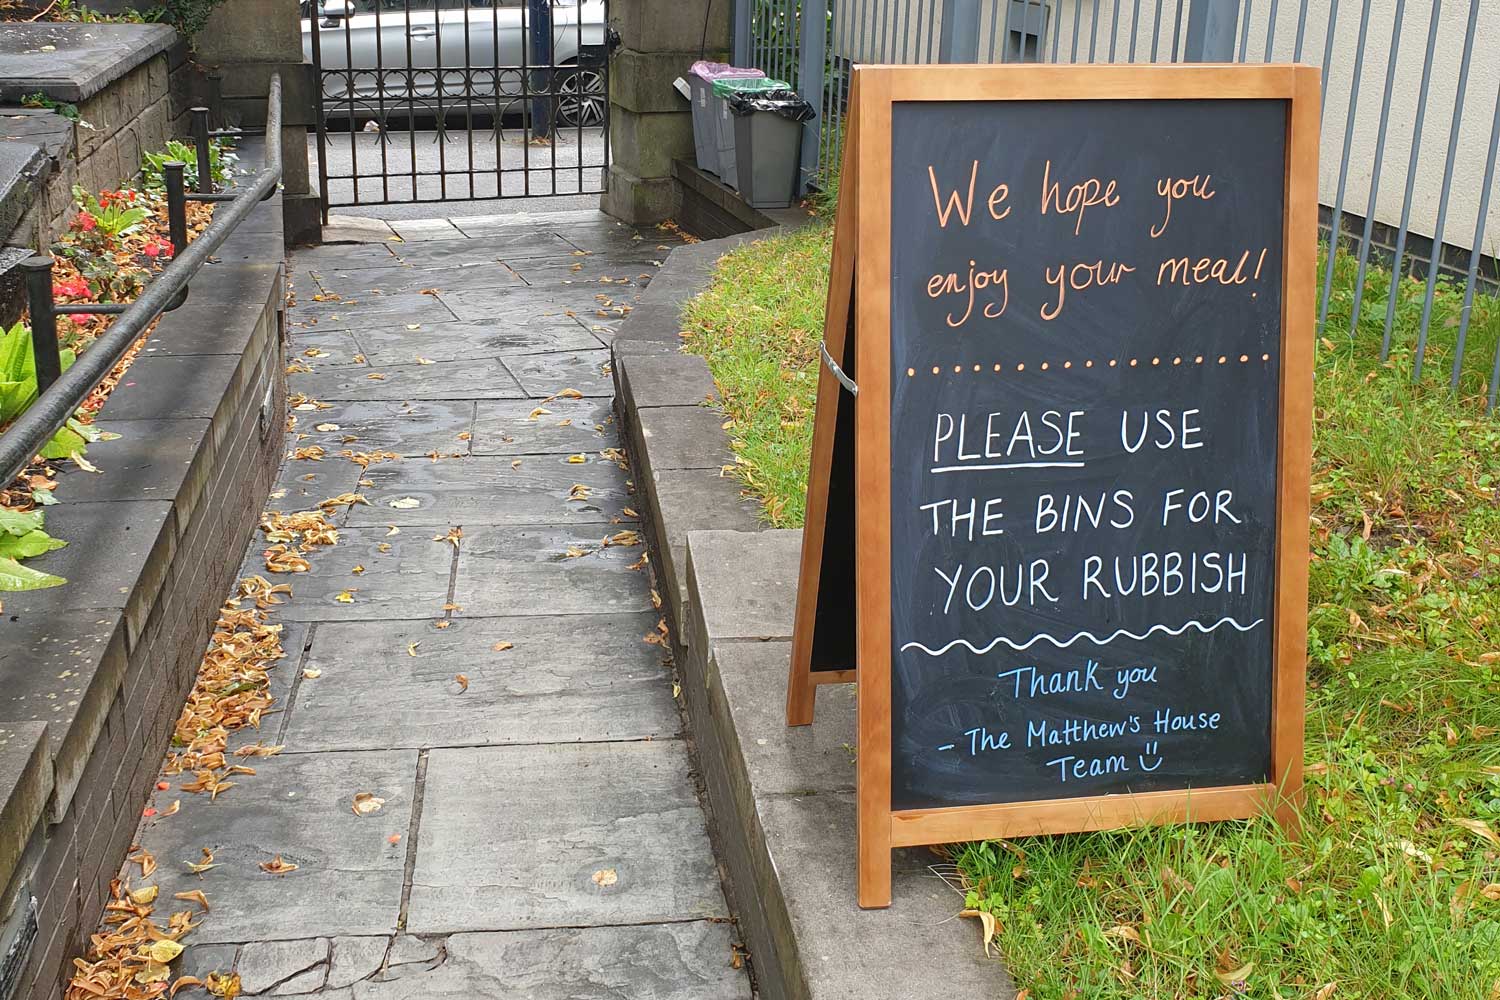 We hope you
enjoy your meal!
PLEASE USE
THE BINS FOR
YOUR RUBBISH
Thank you
- The Matthew's House
Team